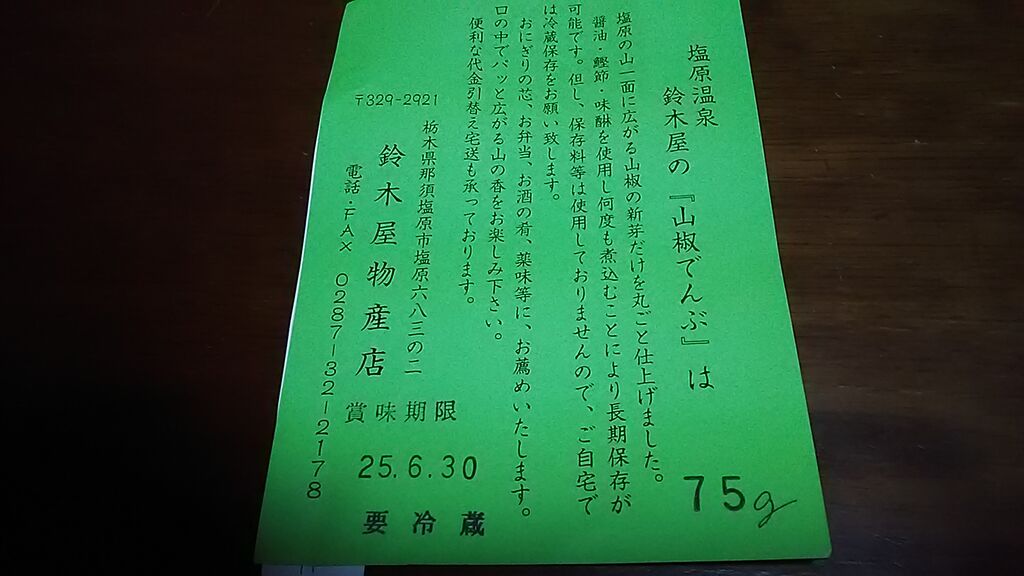 塩原温泉
鈴木屋の『山椒でんぶ』は
塩原の山一面に広がる山椒の新芽だけを丸ごと仕上げました。
醤油・鰹節・味醂を使用し何度も煮込むことにより長期保存が
可能です。但し、保存料等は使用しておりませんので、ご自宅で
は冷蔵保存をお願い致します。
おにぎりの芯、お弁当、お酒の肴、薬味等に、お薦めいたします。
口の中でパッと広がる山の香をお楽しみ下さい。
便利な代金引替え宅送も承っております。
〒329-2921
栃木県那須塩原市塩原六八三の二
鈴木屋物産店
電話・FAX 0287-32-2178
賞味期限
25.6.30
要冷蔵
75g